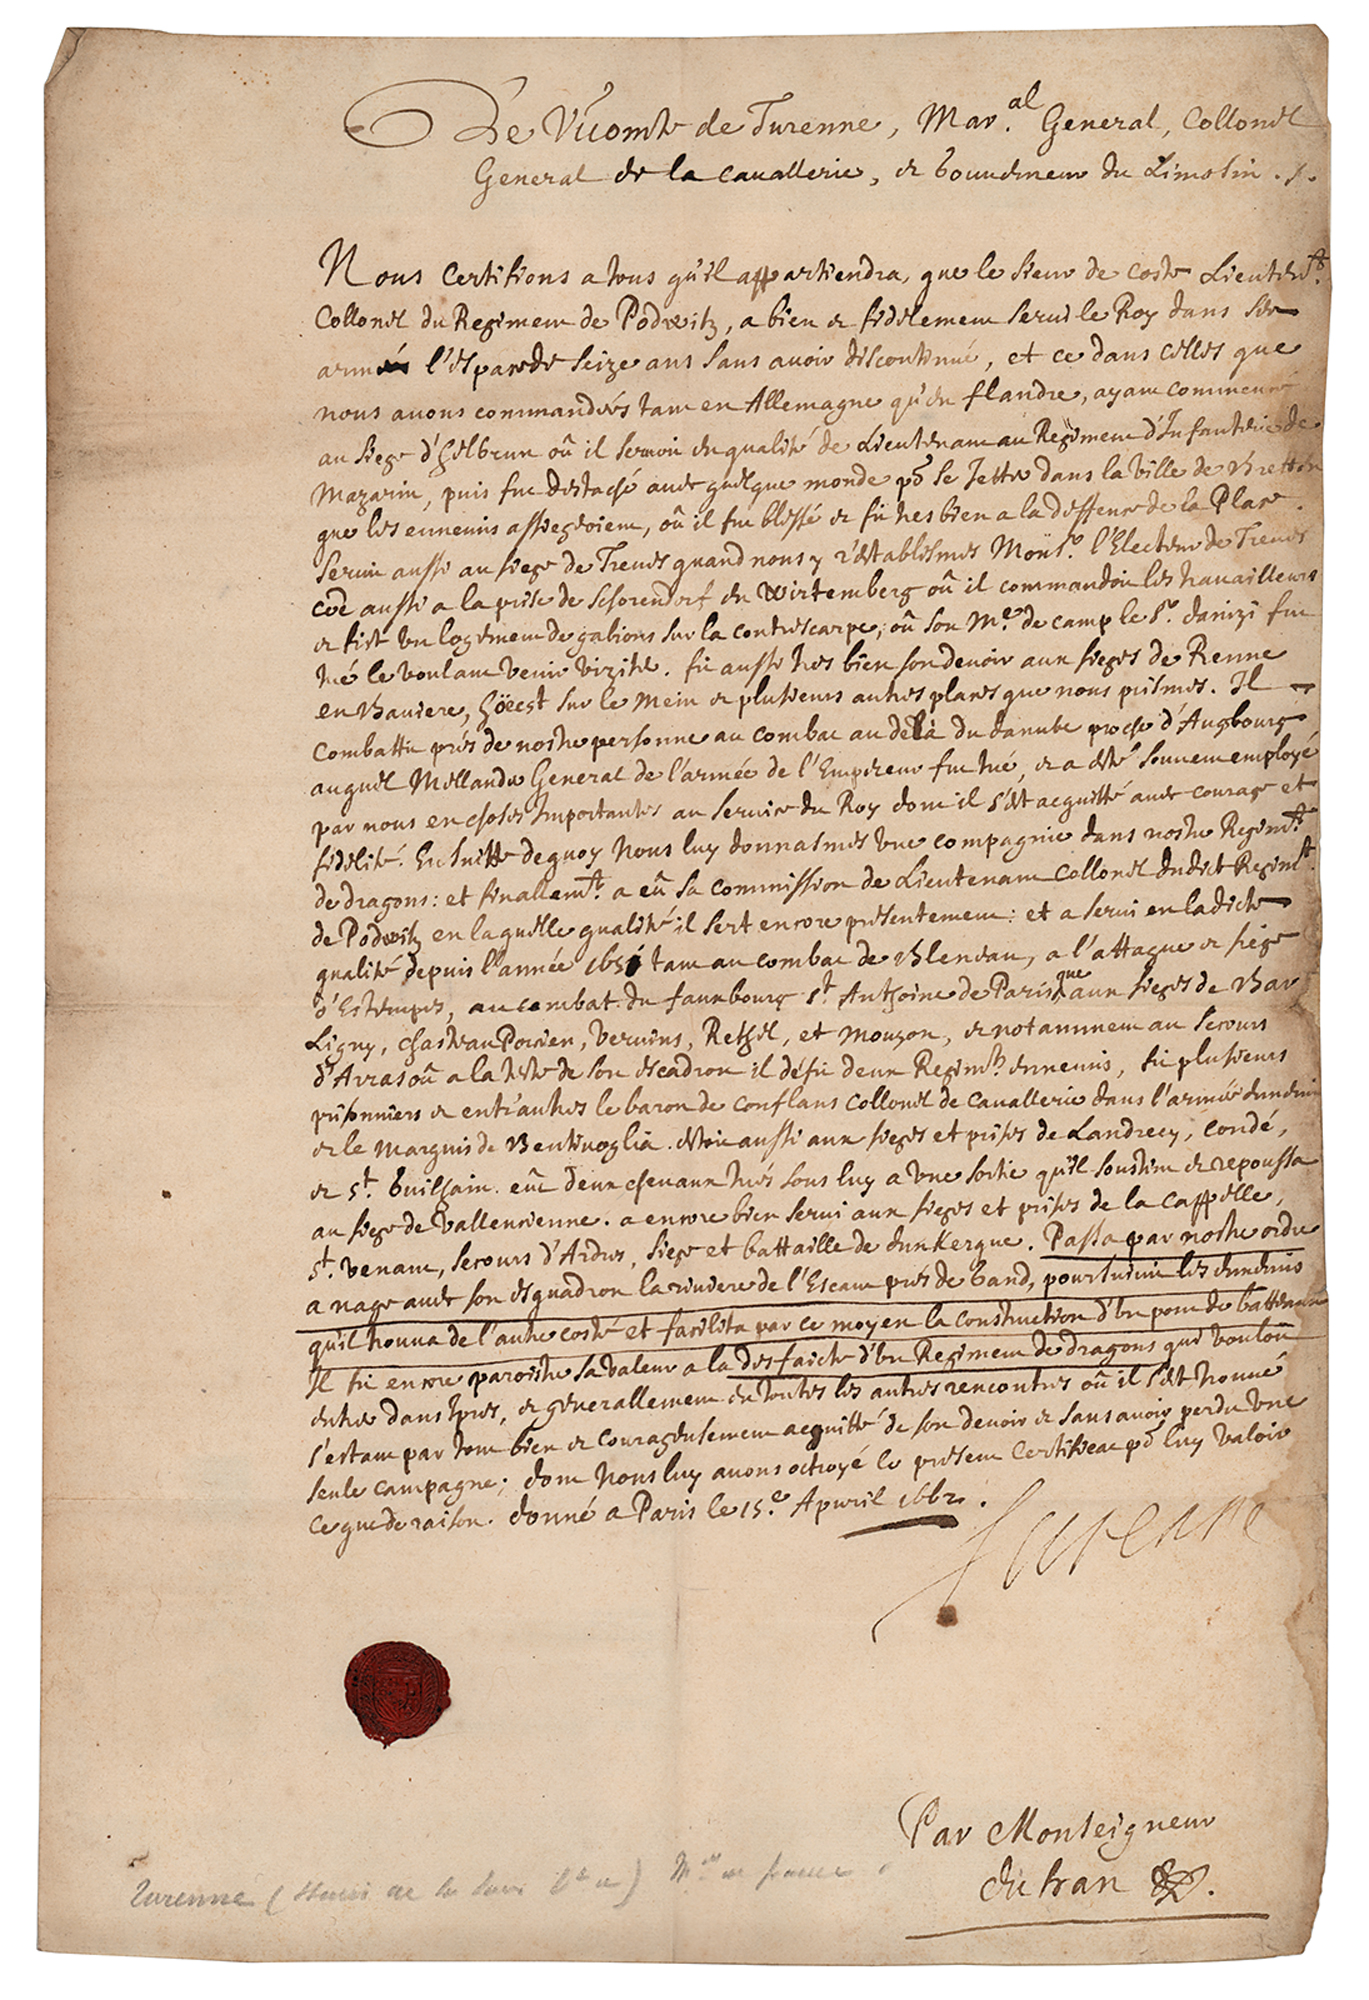 Le Vicomte de Turenne, Mar.al General, Collonel
General de la Cauallerie, et Gouuerneur du Limosin ./.
Nous Certifions a tous qu'il appartiendra, que le sieur de Coste Lieuten.t
Collonel du Regiment de Podwitz, a bien et fidelement serui le Roy dans ses
armées l'espace de seize ans sans auoir discontinué, et ce dans celles que
nous auons commandées tant en Allemagne qu'en flandre, ayant commencé
au siege d'Heilbrun où il seruoit en qualité de Lieutenant au Regiment d'Infanterie de
Mazarin, puis fut destaché auec quelque monde po.r se Jetter dans la ville de Bretten
que les ennemis assiegeoient, où il fut blessé et fit tres bien a la deffence de la Place.
Seruit aussi au siege de Treues quand nous y restablismes Mons.r l'Electeur de Treues
aussi a la prise de Schorendorf en Wirtemberg où il commandoit les trauailleurs
et fist un logement de gabions sur la contrescarpe, où son M.e de camp le S.r danizi fut
tué le voulant venir viziter. fit aussi tres bien son deuoir aux sieges de Renne
en Bauiere, Höecst sur le Mein et plusieurs autres places que nous prismes. Il
combattit prés de nostre personne au combat au delà du danube proche d'Augbourg
auquel Mellander General de l'armée de l'Empereur fut tué, et a esté souuent employé
par nous en choses Importantes au seruice du Roy dont il s'est acquitté auec courage et
fidelité. En suitte dequoy Nous luy donnasmes une compagnie dans nostre Regim.t
de dragons: et finallem.t a eû sa commission de Lieutenant Collonel dudict Regim.t
de Podwitz en laquelle qualité il sert encore presentement: et a serui en ladicte
qualité depuis l'année 1651 tant au combat de Bleneau, a l'attaque et siége
d'Estempes, au combat du fauxbourg S.t Anthoine de Paris, que aux sieges de Bar
Ligny, Chasteau Porcien, Veruins, Rethel, et Mouzon, et notamment au secours
d'Arras où a la teste de son escadron il défit deux Regim.ts ennemis, fit plusieurs
prisonniers et entr'autres le baron de Conflans Collonel de Cauallerie dans l'armée
et le Marquis de Bentiuoglia. estoit aussi aux sieges et prises de Landrecy, Condé,
et S.t Guillain. eût deux cheuaux tués sous luy a une sortie qu'il soustint et repoussa
au siege de Vallencienne. a encore bien serui aux sieges et prises de la Cappelle,
S.t Venant, secours d'Ardres, siege et battaille de dunKerque. Passa par nostre ordre
a nage auec son esquadron la riuiere de l'Escaut prés de Gand, poursuiuit les ennemis
qu'il trouua de l'autre costé et facilita par ce moyen la construction d'un pont de batteaux
Il fit encore paroistre sa valeur a la desfaicte d'un Regiment de dragons qui vouloit
entrer dans Ipres, et generallement en toutes les autres rencontres où il s'est trouué
s'estant par tout bien et courageusement acquitté de son deuoir et sans auoir perdu une
seule campagne; dont Nous luy auons octroyé le present Certificat po.r luy valoir
ce que de raison. donné a Paris le 15.e Apuril 1662.
Turenne
Par Monseigneur
du han
Turenne ( ) M.al de france